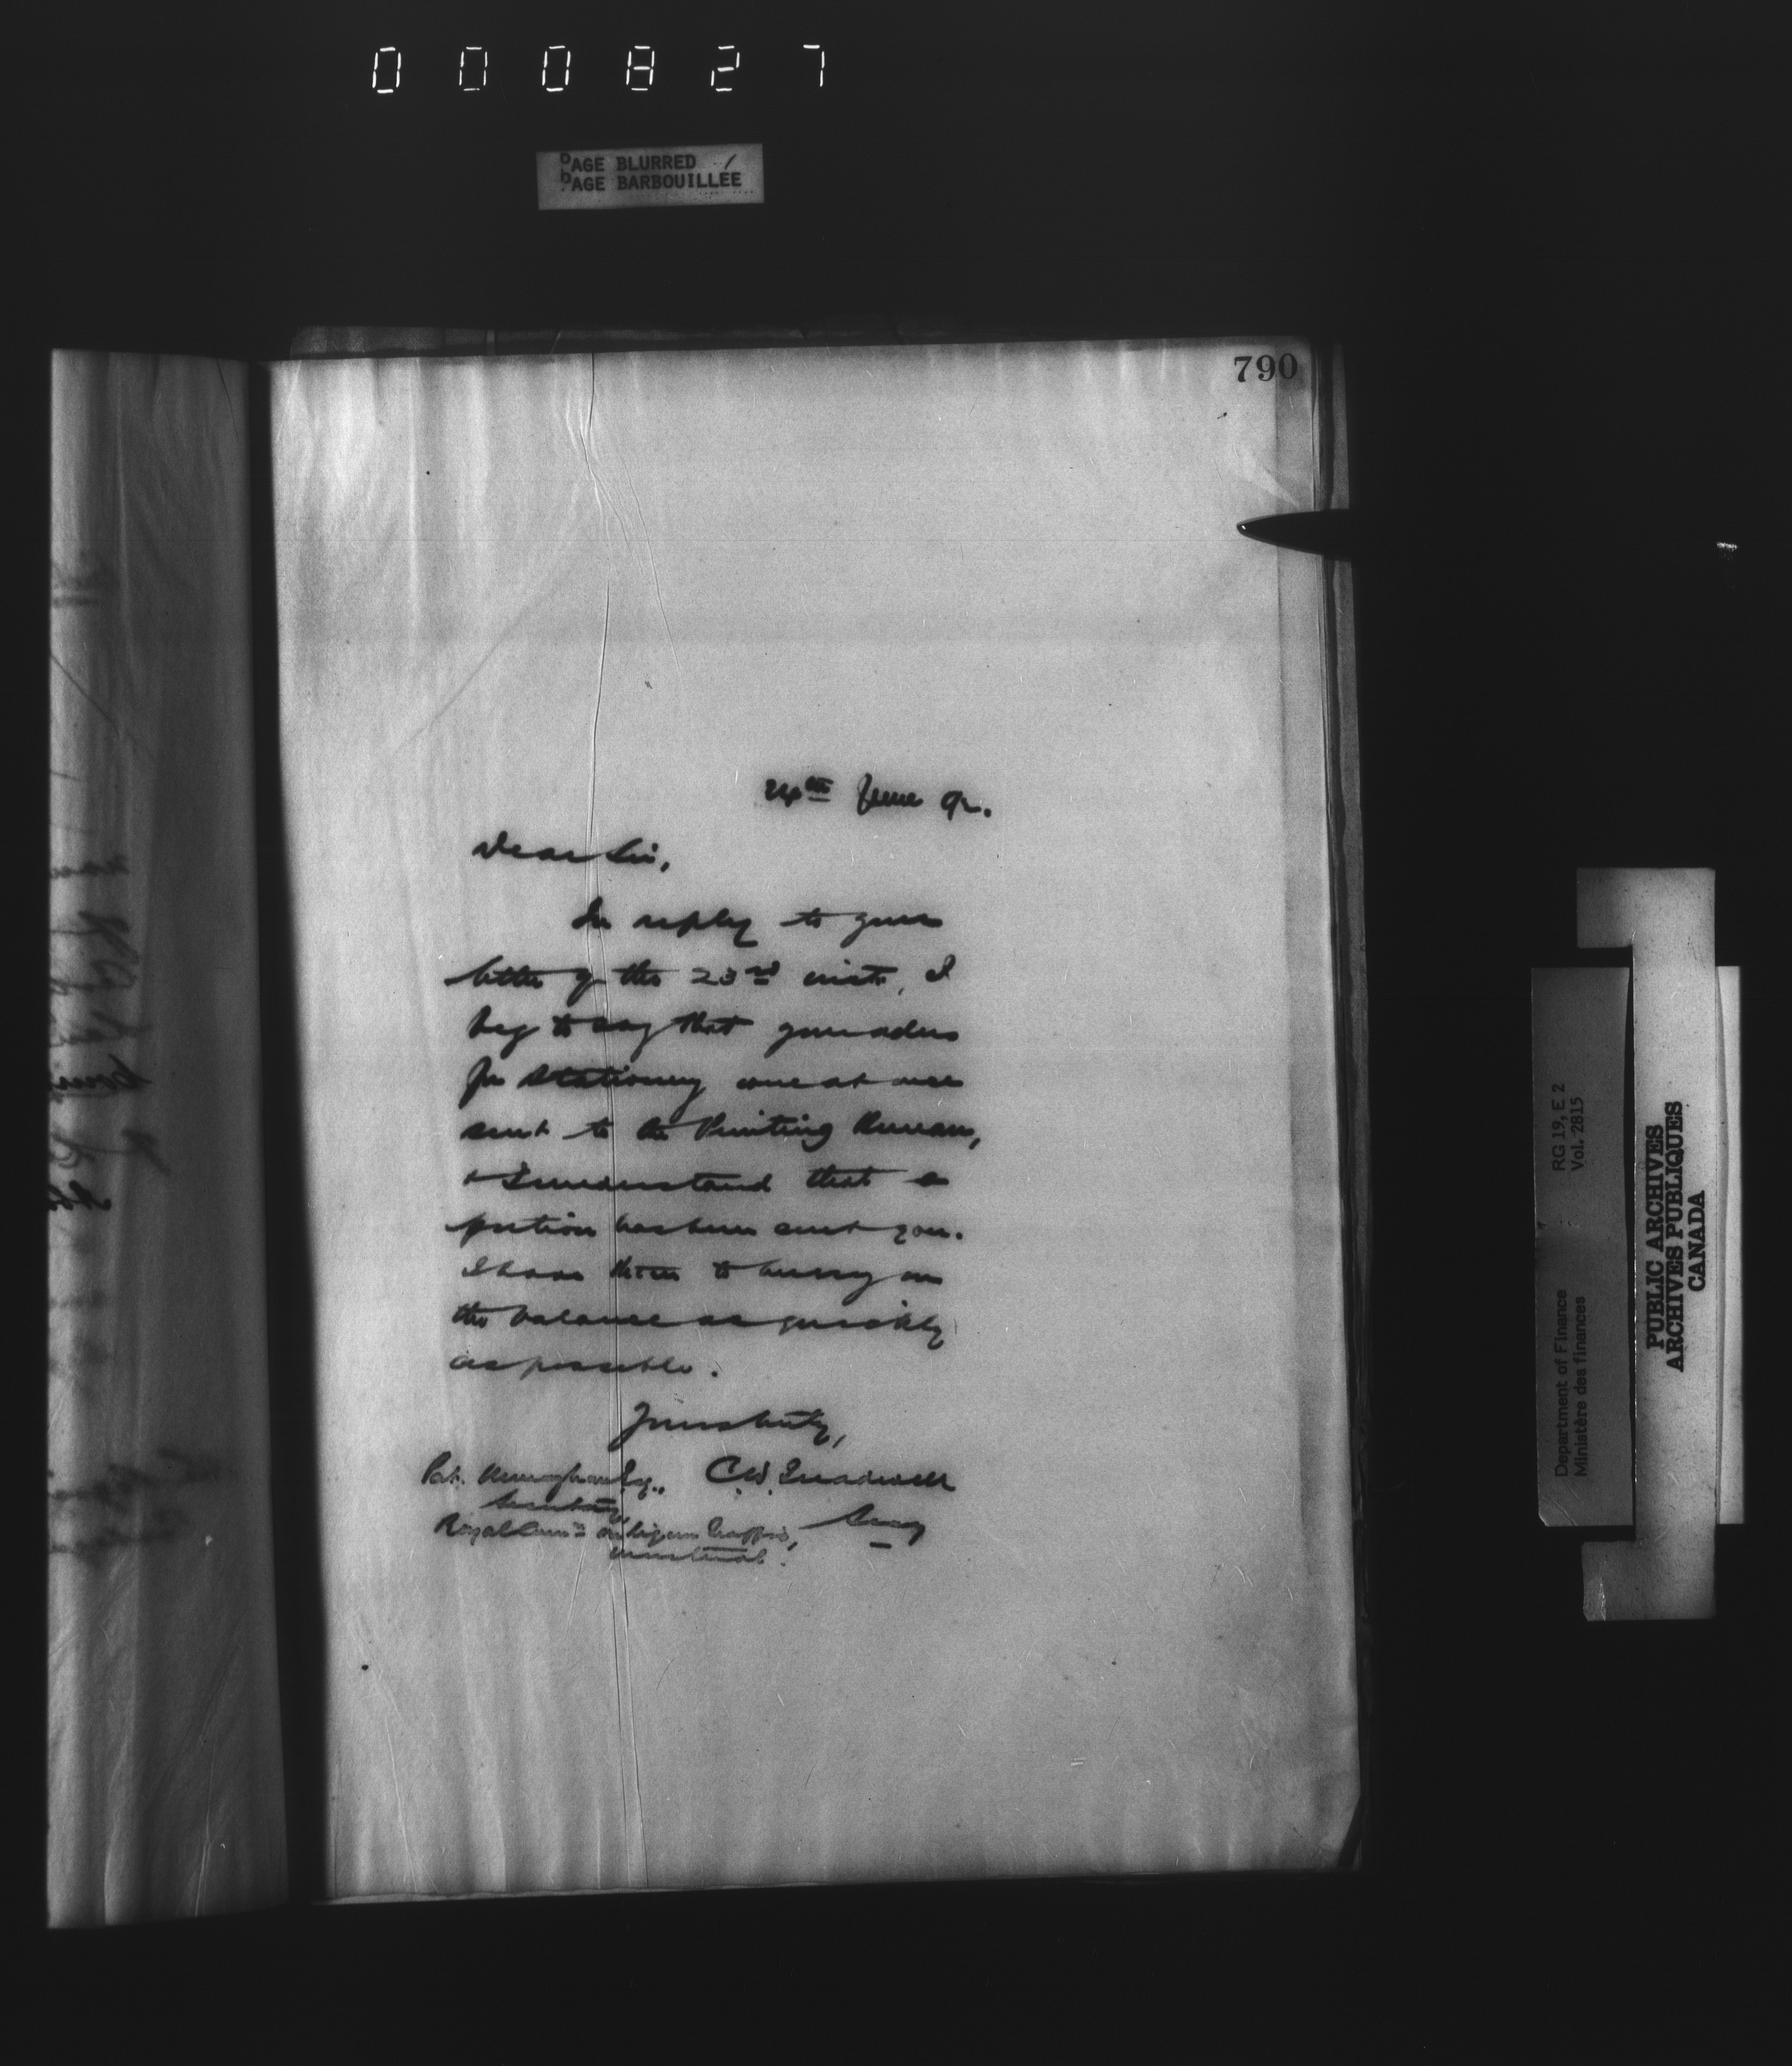 000827
PAGE BLURRED
PAGE BARBOUILLÉE
790
24th June 92.
Dear Sir,
In reply to your
letter of the 23rd inst, I
beg to say that your orders
for stationery were at once
sent to the Printing Bureau,
& I understand that a
portion has been sent you.
I have them to hurry on
the balance as quickly
as possible.
Yours truly,
Pat. Monaghan Esq., C.W. Treadwell
Secretary, Secy
Royal Comn on Liquor Traffic,
Montreal.
RG 19, E 2
Vol. 2815
Department of Finance
Ministère des finances
PUBLIC ARCHIVES
ARCHIVES PUBLIQUES
CANADA